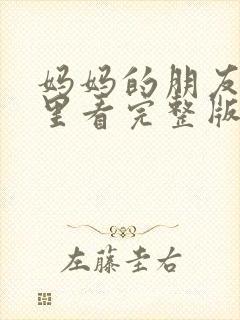 妈妈的朋友
里看完整版
左藤圭右